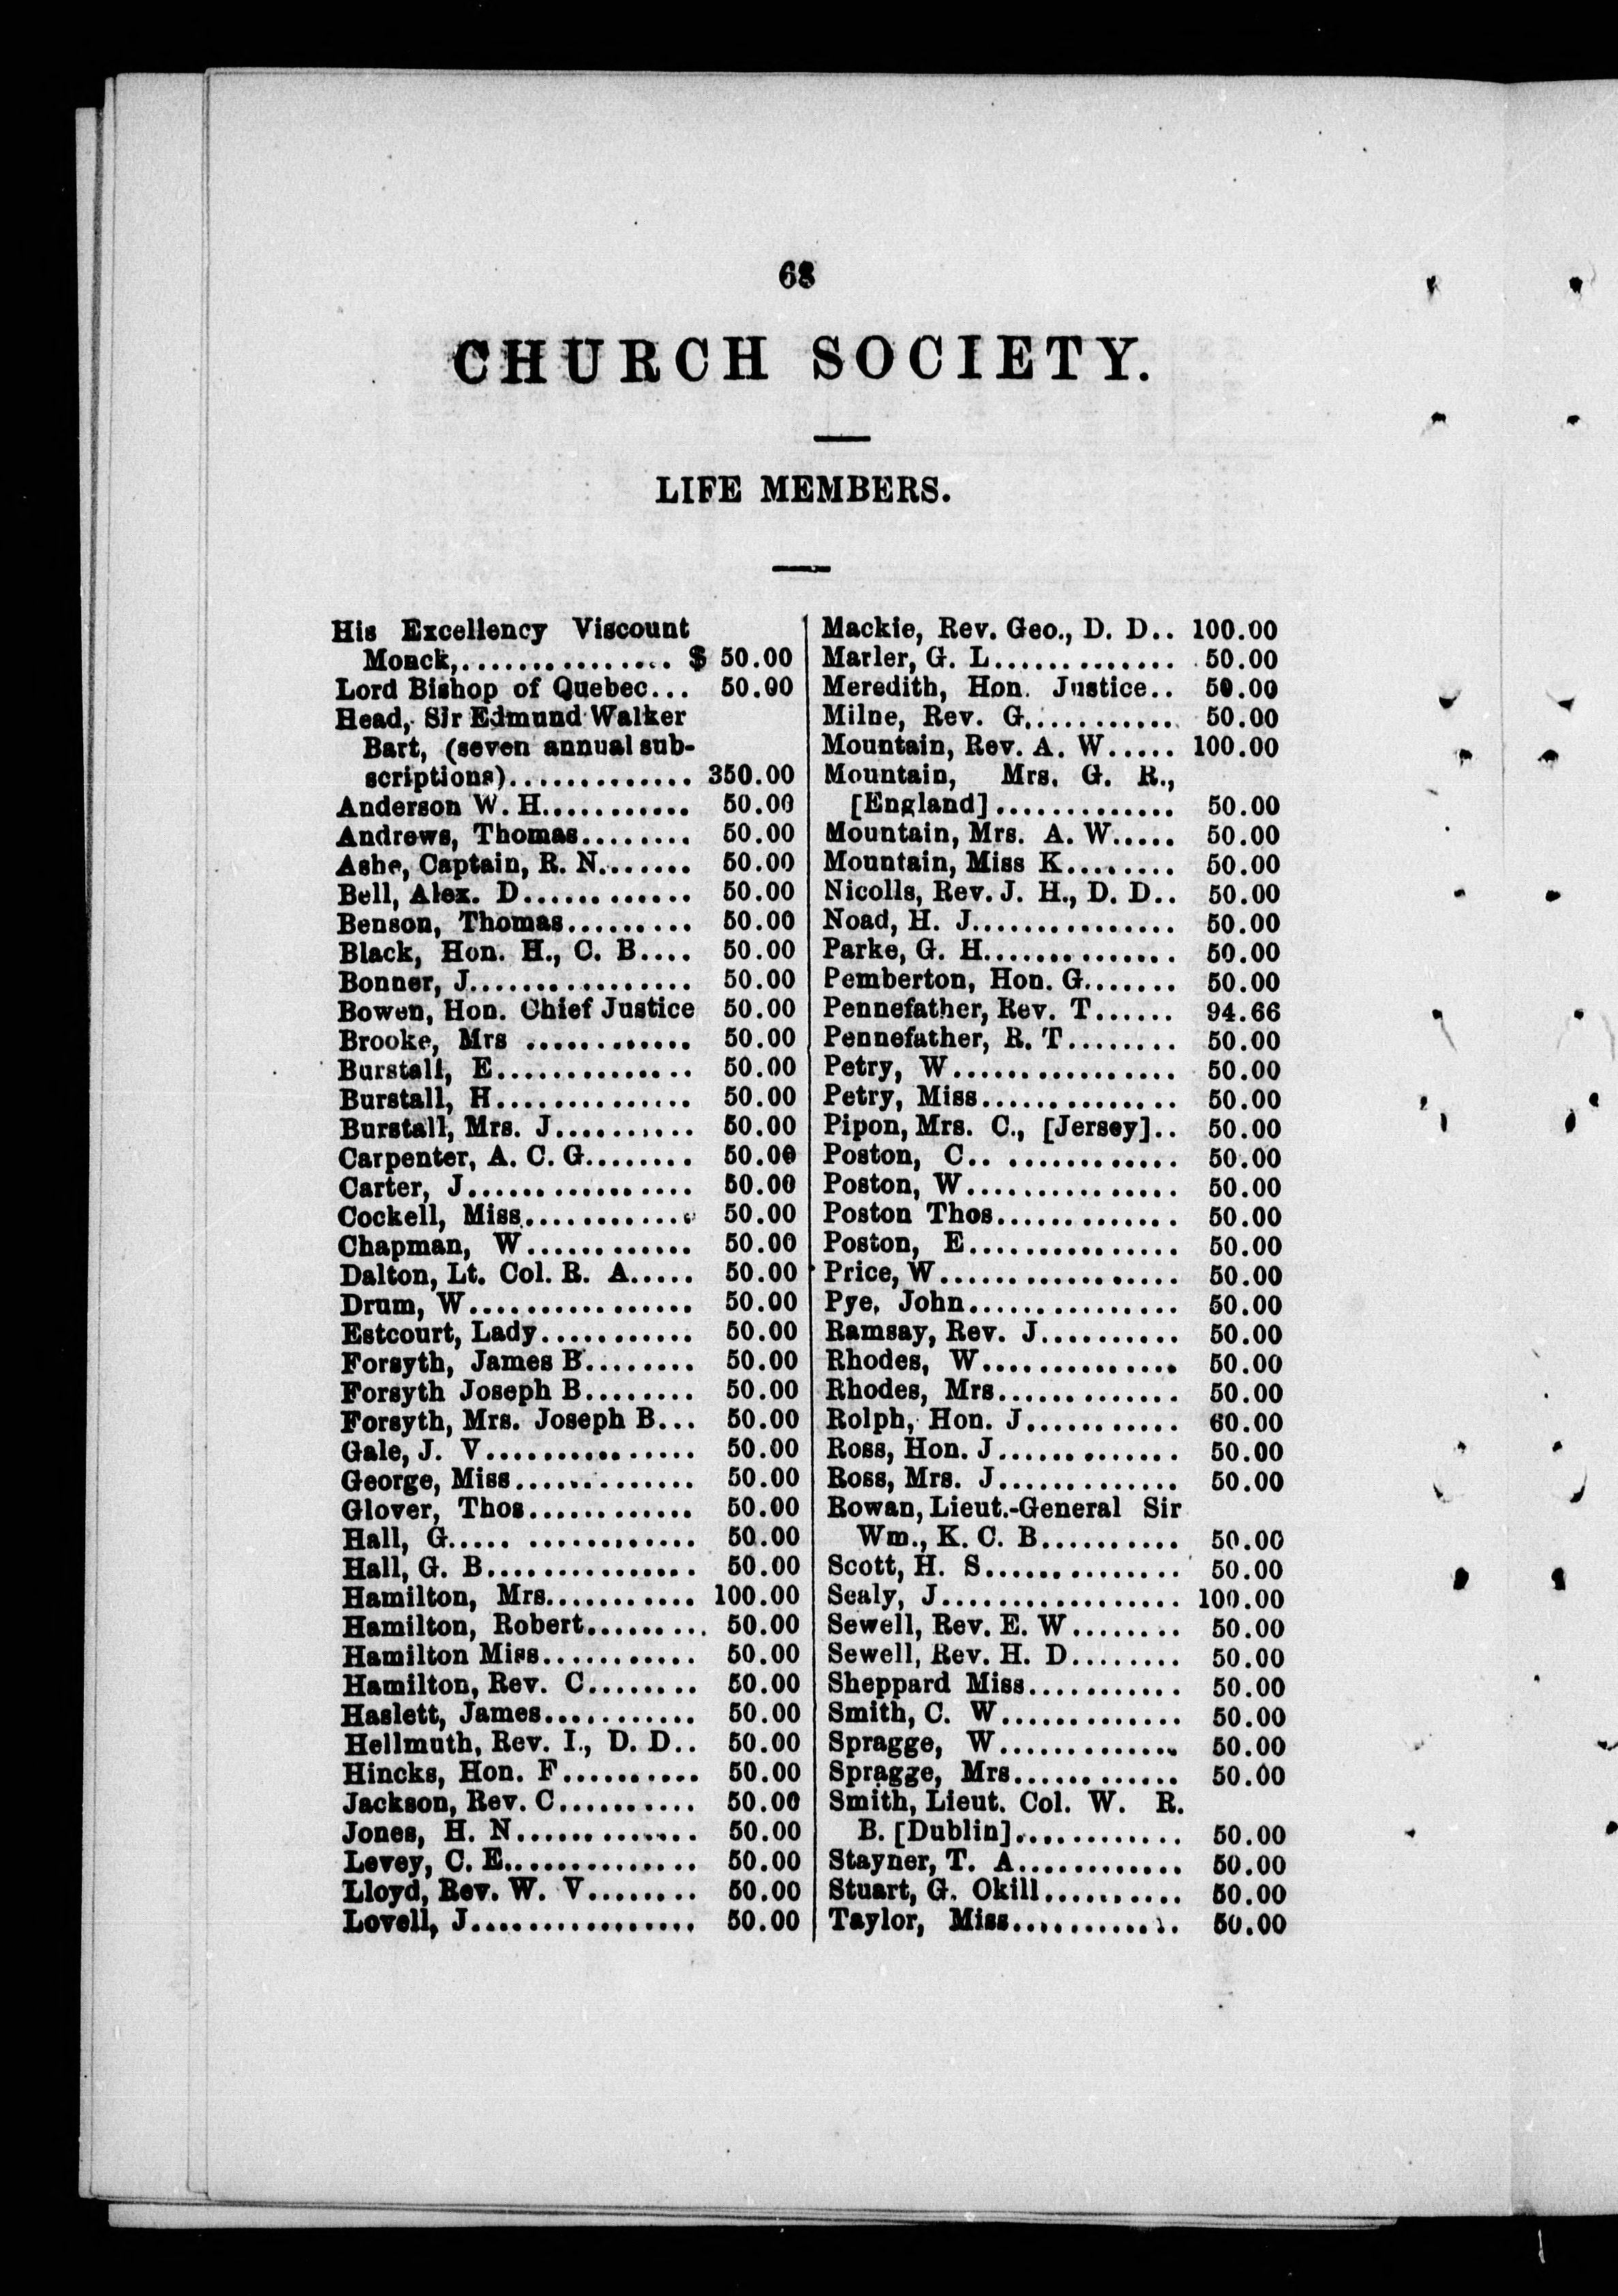 68
CHURCH SOCIETY.
LIFE MEMBERS.
His Excellency Viscount
Monck,................ $ 50.00
Lord Bishop of Quebec... 50.00
Head, Sir Edmund Walker
Bart, (seven annual sub-
scriptions)............. 350.00
Anderson W. H........... 50.00
Andrews, Thomas........ 50.00
Ashe, Captain, R. N....... 50.00
Bell, Alex. D............ 50.00
Benson, Thomas......... 50.00
Black, Hon. H., C. B.... 50.00
Bonner, J................ 50.00
Bowen, Hon. Chief Justice 50.00
Brooke, Mrs ............ 50.00
Burstall, E.............. 50.00
Burstall, H.............. 50.00
Burstall, Mrs. J.......... 50.00
Carpenter, A. C. G........ 50.00
Carter, J................ 50.00
Cockell, Miss............ 50.00
Chapman, W............ 50.00
Dalton, Lt. Col. R. A..... 50.00
Drum, W................ 50.00
Estcourt, Lady........... 50.00
Forsyth, James B........ 50.00
Forsyth Joseph B........ 50.00
Forsyth, Mrs. Joseph B... 50.00
Gale, J. V............... 50.00
George, Miss............. 50.00
Glover, Thos............ 50.00
Hall, G..... ............ 50.00
Hall, G. B............... 50.00
Hamilton, Mrs........... 100.00
Hamilton, Robert......... 50.00
Hamilton Miss........... 50.00
Hamilton, Rev. C........ 50.00
Haslett, James........... 50.00
Hellmuth, Rev. I., D. D.. 50.00
Hincks, Hon. F.......... 50.00
Jackson, Rev. C.......... 50.00
Jones, H. N............. 50.00
Levey, C. E.............. 50.00
Lloyd, Rev. W. V........ 50.00
Lovell, J................ 50.00
Mackie, Rev. Geo., D. D.. 100.00
Marler, G. L............. 50.00
Meredith, Hon. Justice.. 50.00
Milne, Rev. G........... 50.00
Mountain, Rev. A. W..... 100.00
Mountain, Mrs. G. R.,
[England]............. 50.00
Mountain, Mrs. A. W..... 50.00
Mountain, Miss K........ 50.00
Nicolls, Rev. J. H., D. D.. 50.00
Noad, H. J............... 50.00
Parke, G. H.............. 50.00
Pemberton, Hon. G....... 50.00
Pennefather, Rev. T...... 94.66
Pennefather, R. T........ 50.00
Petry, W................ 50.00
Petry, Miss.............. 50.00
Pipon, Mrs. C., [Jersey].. 50.00
Poston, C.. ............ 50.00
Poston, W............... 50.00
Poston Thos............. 50.00
Poston, E............... 50.00
Price, W................. 50.00
Pye, John............... 50.00
Ramsay, Rev. J.......... 50.00
Rhodes, W.............. 50.00
Rhodes, Mrs............. 50.00
Rolph, Hon. J........... 60.00
Ross, Hon. J............. 50.00
Ross, Mrs. J............. 50.00
Rowan, Lieut.-General Sir
Wm., K. C. B.......... 50.00
Scott, H. S.............. 50.00
Sealy, J................. 100.00
Sewell, Rev. E. W........ 50.00
Sewell, Rev. H. D........ 50.00
Sheppard Miss........... 50.00
Smith, C. W............. 50.00
Spragge, W............. 50.00
Spragge, Mrs............ 50.00
Smith, Lieut. Col. W. R.
B. [Dublin]............ 50.00
Stayner, T. A............ 50.00
Stuart, G. Okill.......... 50.00
Taylor, Miss............ 50.00